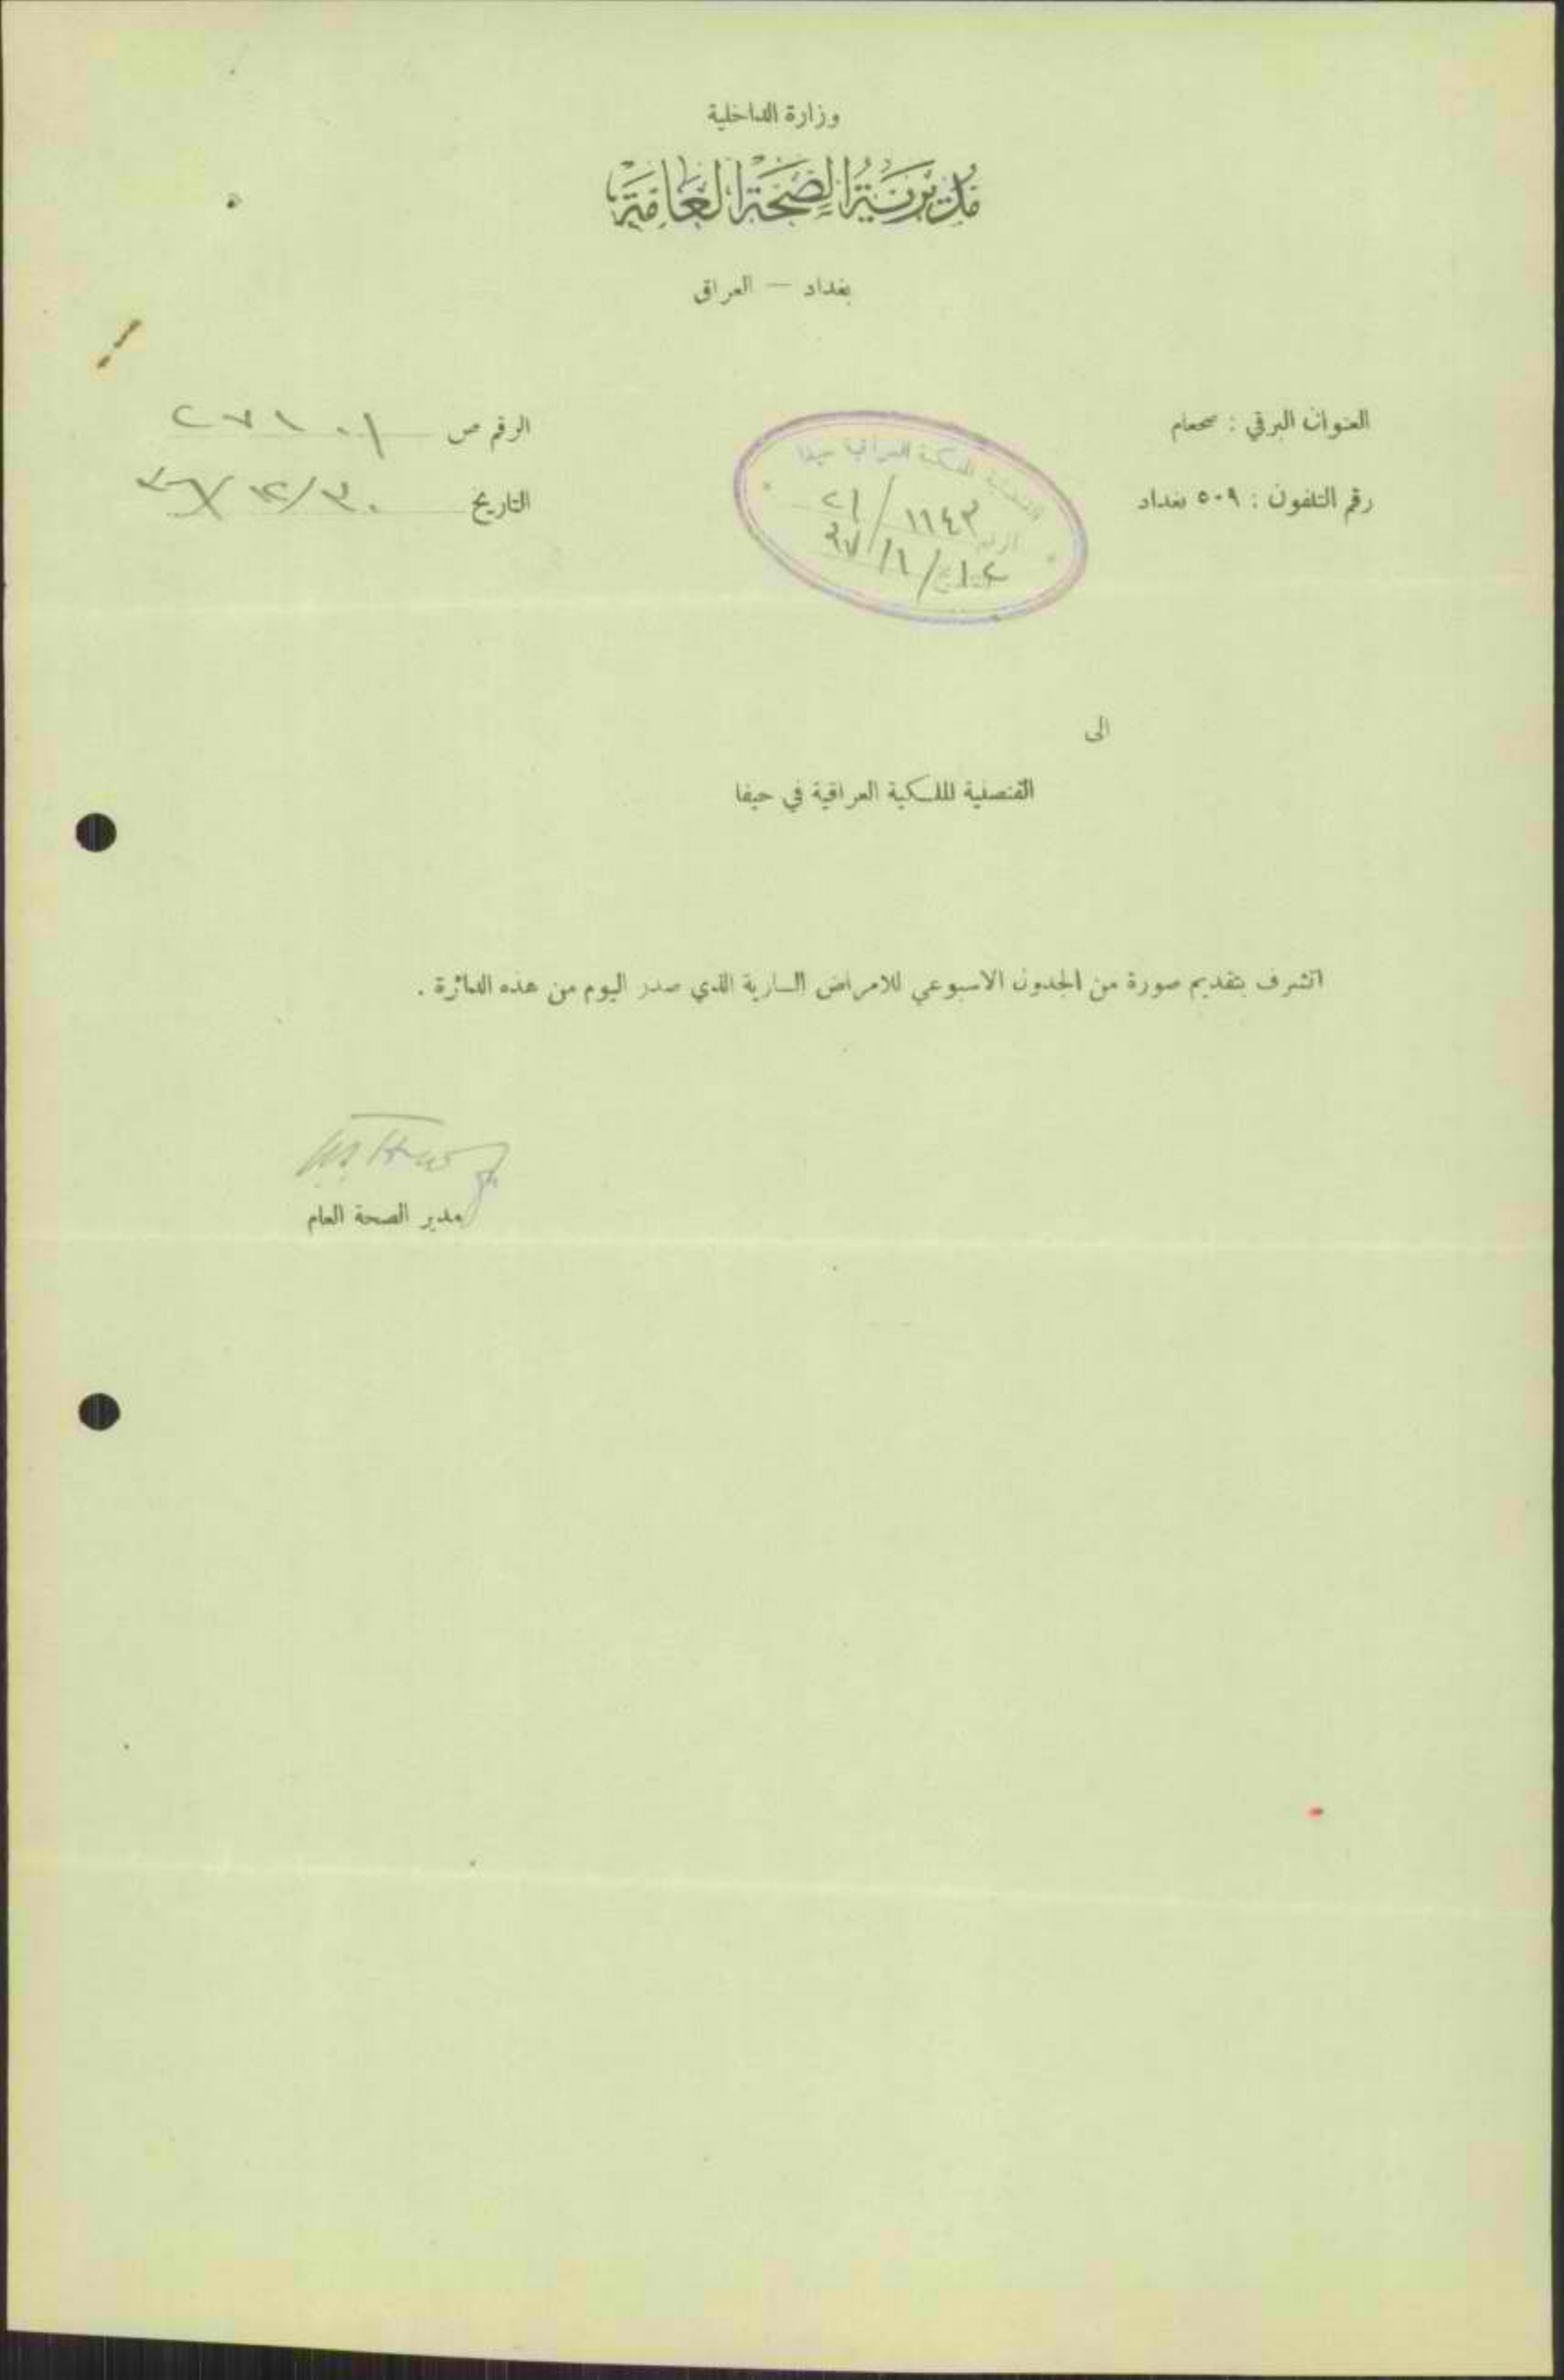 وزارة الداخلية
مديرية الصحة العامة
بغداد — العراق
العنوان البرقي : صحعام
رقم التلفون : ٥٠٩ بغداد
الرقم ص
التاريخ ٣٠/١٢/
القنصلية الملكية العراقية حيفا
الرقم ١١٤٣/٢١
الى
القنصلية الملكية العراقية في حيفا
اتشرف بتقديم صورة من الجدول الاسبوعي للامراض السارية الذي صدر اليوم من هذه الدائرة .
مدير الصحة العام